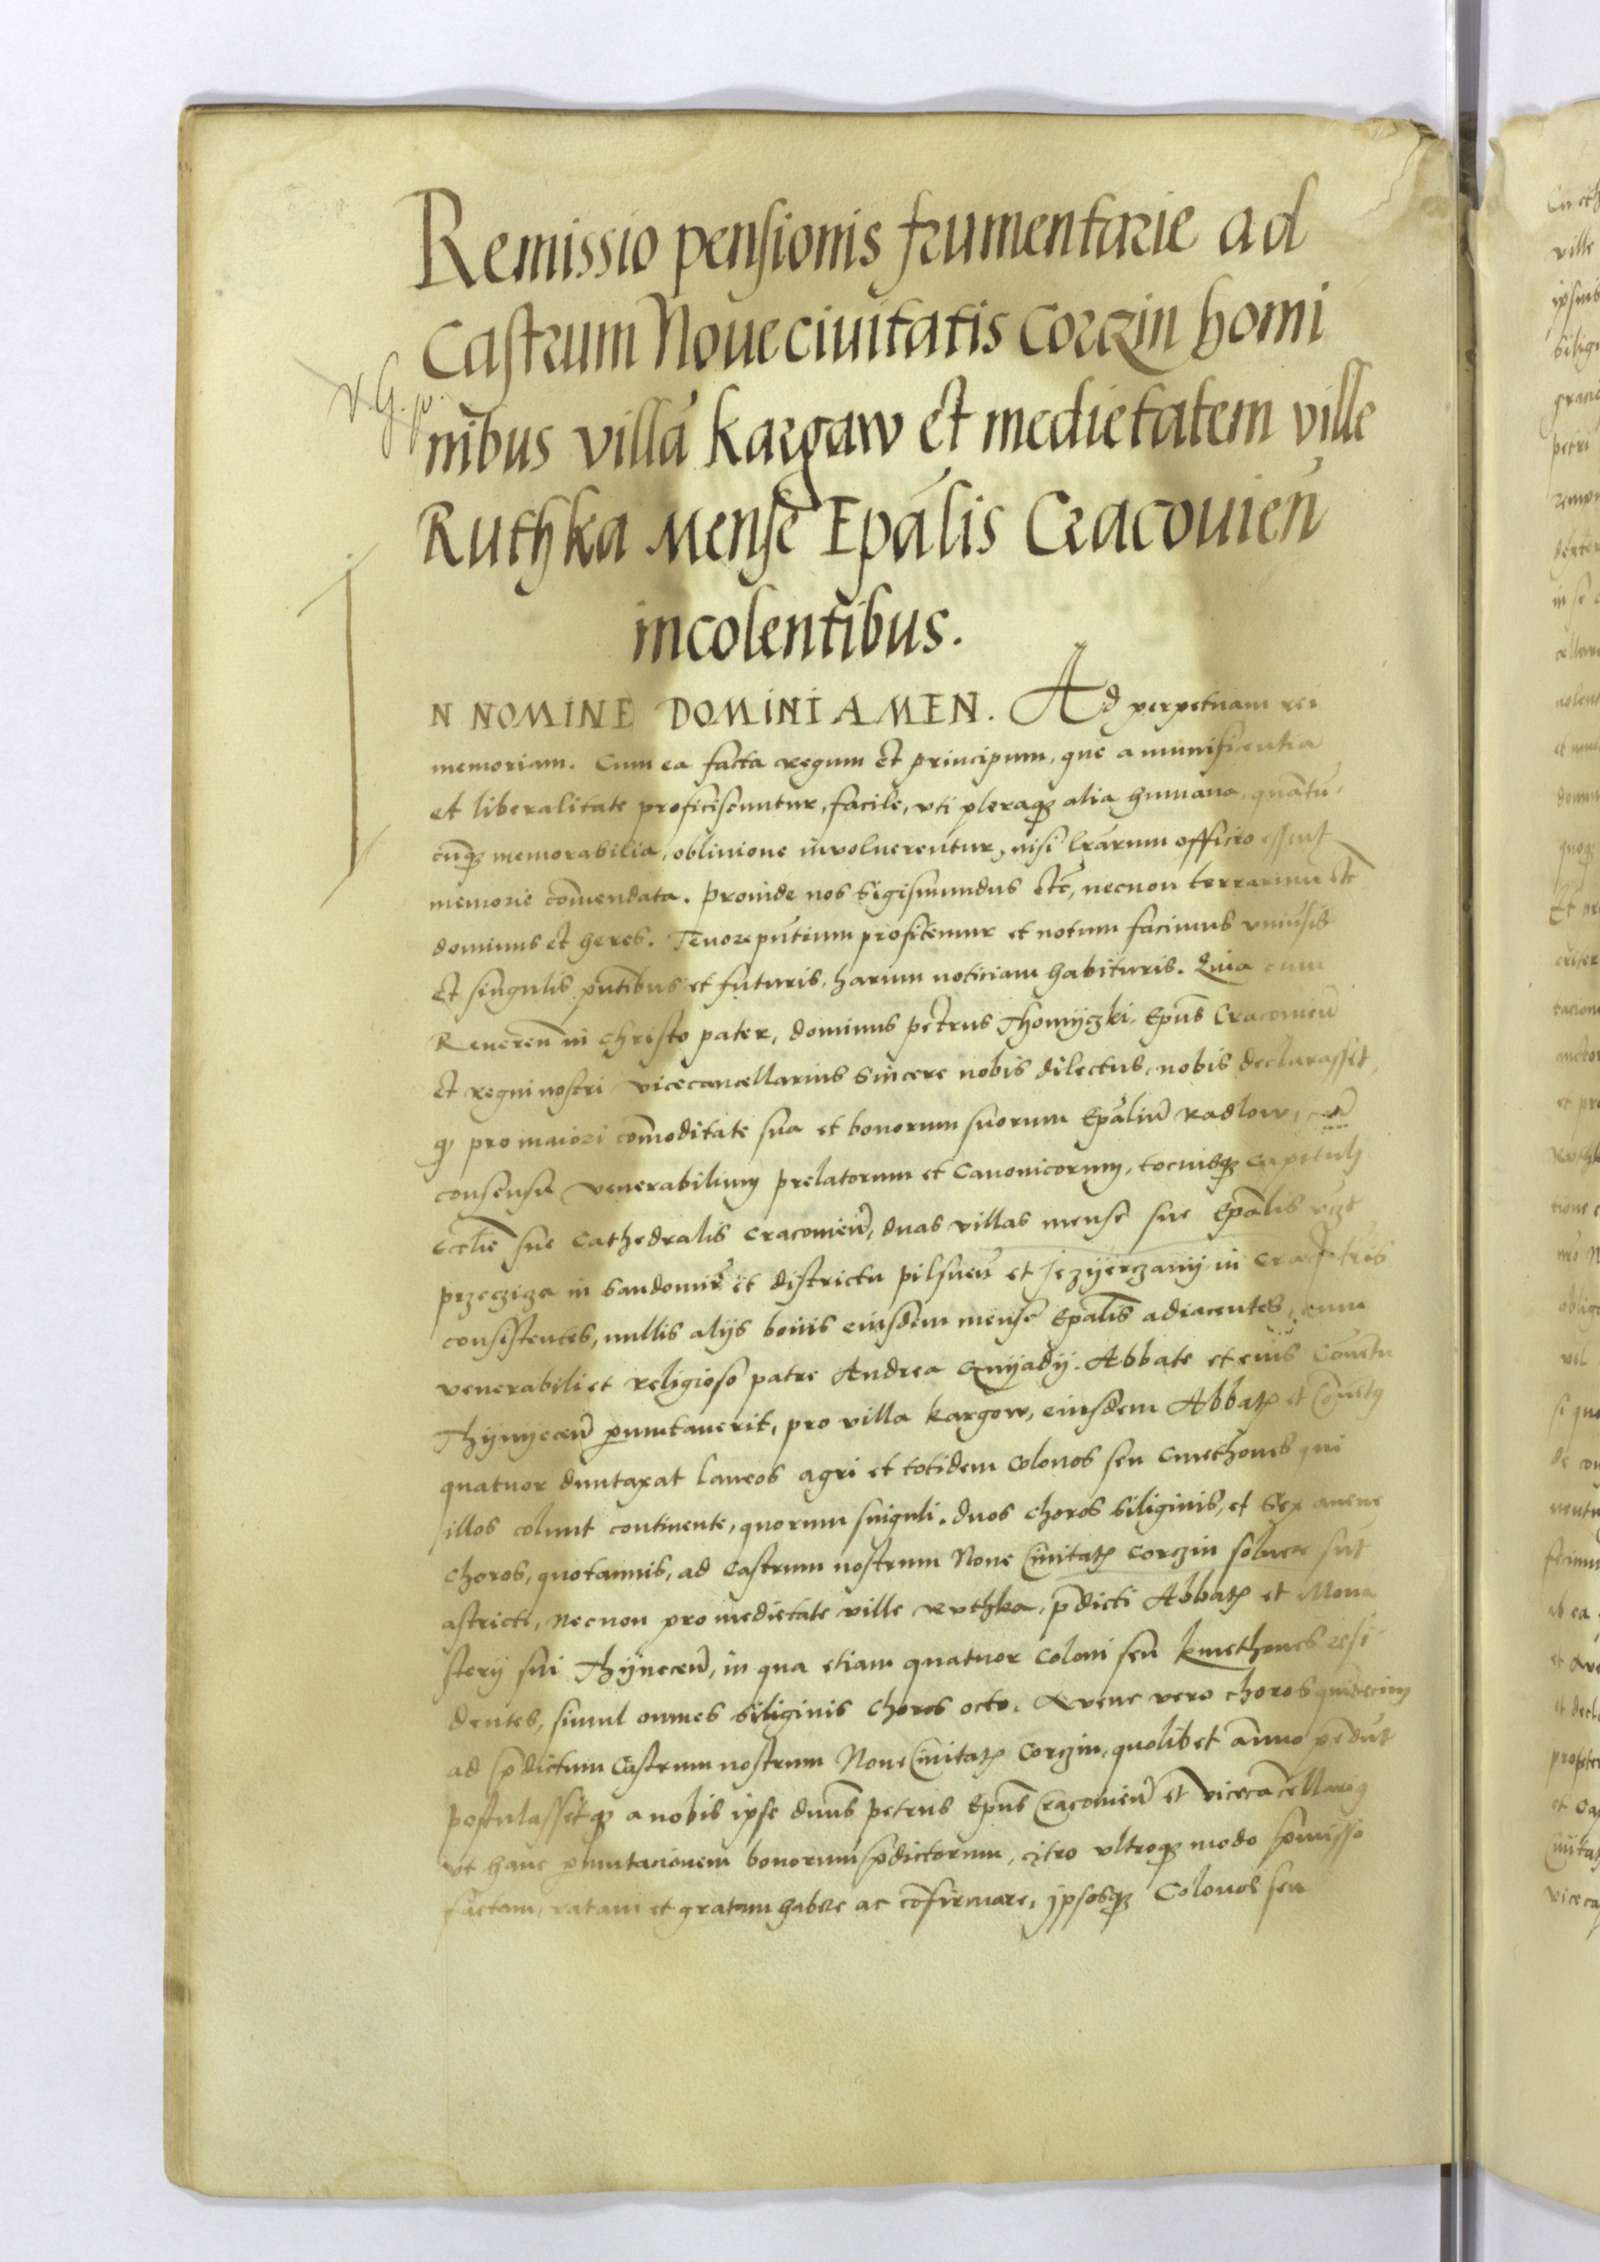 Remissio pensionis frumentarie ad
Castrum Noue ciuitatis Corczin homi
nibus villã Kargaw et medietatem ville
Ruthka Mense Epãlis Cracouieñ
incolentibus.
IN NOMINE DOMINI AMEN. Ad perpetuam rei
memoriam. Cum ea facta regum et principum, que a munificentia
et liberalitate proficiscuntur, facile, vti pleraqz alia humana, quãtũ-
cũqz memorabilia, obliuione inuoluerentur, nisi lrãrum officio essent
memorie cõmendata. Proinde nos Sigismundus etc̃, necnon terrarum etc̃
dominus et heres. Tenore pñtium profitemur et notum facimus vniũsis
et singulis pñtibus et futuris, harum noticiam habituris. Quia cum
Reueren̄ in Christo pater, dominus Petrus Thomijczki, Epũs Cracouieñ
et regni nostri vicecancellarius sincere nobis dilectus, nobis declarasset,
q̃ pro maiori cõmoditate sua et bonorum suorum Epãliũ Radlow,
consensu venerabilium prelatorum et Canonicorum, tociusqz Capituli
Ecclie sue Cathedralis Cracouieñ, duas villas mense sue Epãlis vizt
Przeczicza in Sandomir̃ et districtu Pilsneñ et Jezijerzanij in Cracouieñ terris
consistentes, nullis alijs bonis eiusdem mense Epãlis adiacentes, cum
venerabili et religioso patre Andrea Gnijadij Abbate et eius Cõuẽtu
Thijnijeceñ p̃mutauerit, pro villa Kargow, eiusdem Abbatz et Cõuẽtq
quatuor duntaxat laneos agri et totidem Colonos seu Cmethones qui
illos colunt continente, quorum singuli, duos choros siliginis, et sex auene
choros, quotannis, ad Castrum nostrum Noue Ciuitatz Corczin soluere sũt
astricti, Necnon pro medietate ville Ruthka, p̃dicti Abbatz et Mona
sterij sui Thijneceñ, in qua etiam quatuor Coloni seu kmethones resi
dentes, simul omnes siliginis choros octo, Auene vero choros quindecim
ad p̃dictum Castrum nostrum Noue Ciuitatz Corczin, quolibet ãnno pẽdũt
Postulassetqz a nobis ipse dnũs Petrus Epũs Cracouieñ et vicecãcellariq
vt hanc p̃mutacionem bonorum p̃dictorum, citro vltroqz modo p̃misso
factam, ratam et gratam habere ac cõfirmare, ipsosqz Colonos seu